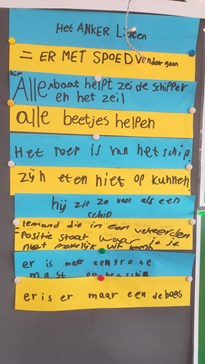 Het ANKER Lichten
= ER MET SPOED Vandoorgaan
Alle baat helpt zei de schipper
en het zeil
alle beetjes helpen
Het roer is van het schip
zijn eten niet op kunnen
hij zie zo vast als een
schip
= Iemand die in een verkeerden
Positie staat waar je
niet makelijk uit komt
er is maar een grote
mast op het schip
er is er maar een de baas